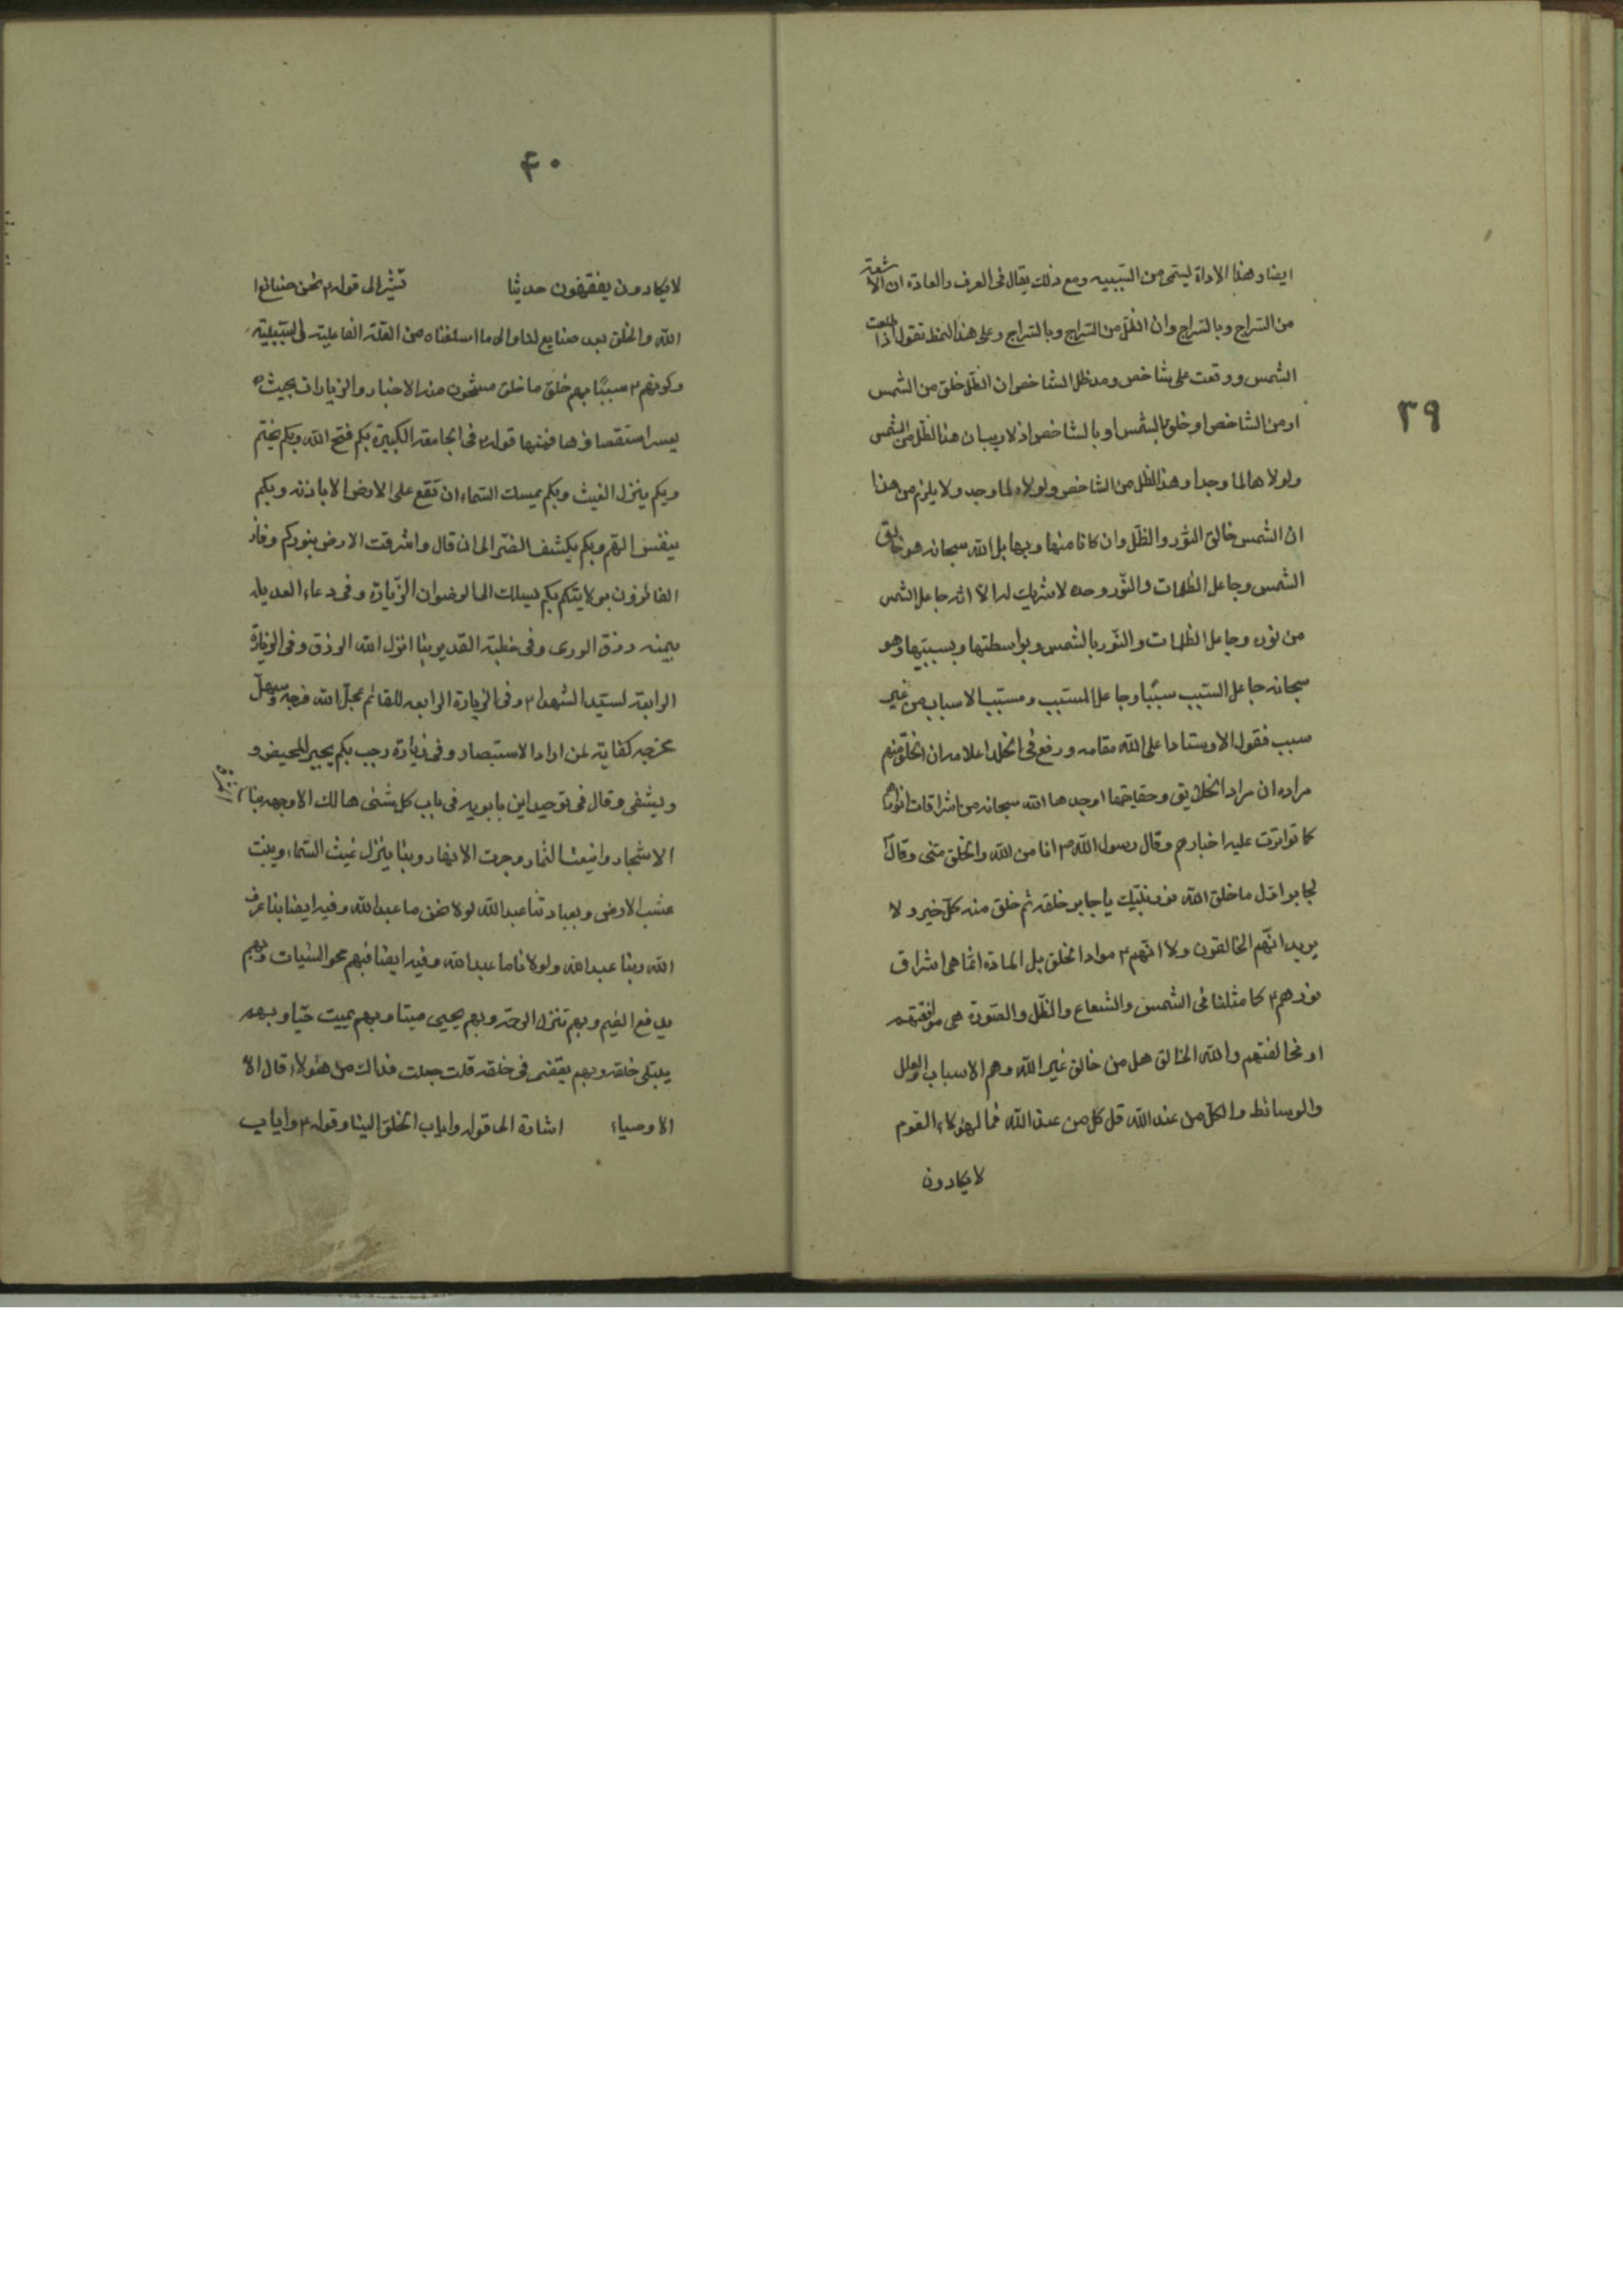 ٣٩
ايضا وهذا الاداة ليتمى من السببيه ومع ذلك يقال فى العرف والعادة ان الاشعة
من السراج وبالسراج وان الظل من السراج وبالسراج وعلى هذا النمط نقول اذا طلعت
الشمس ووقعت على شاخص ومد ظل الشاخص ان الظل خلق من الشمس
او من الشاخص او خلق بالشمس او بالشاخص اذ لا ريب ان هذا الظل من الشمس
ولولاها لما وجد او هذا الظل من الشاخص ولولاه لما وجد ولا يلزم من هذا
ان الشمس خالق النور والظل وان كانا منها وبها بل الله سبحانه هو خالق
الشمس وجاعل الظلمات والنور وحده لا شريك له الا انه جاعل الشمس
من نوره وجاعل الظلمات والنور بالشمس وبواسطتها وبسببيتها وهو
سبحانه جاعل السبب سببا وجاعل المسبب ومسبب الاسباب من غير
سبب فقول الاوستاد اعلى الله مقامه ورفع فى الخلد اعلامه ان الخلق منهم
مراده ان مراد الخلايق وحقايقها اوجدها الله سبحانه من اشراقات انوارهم
كما تواترت عليه اخبارهم وقال رسول الله ص انا من الله والخلق منى وقال
لجابر اول ما خلق الله نور نبيك يا جابر خلقه ثم خلق منه كل خير ولا
يريد انهم الخالقون ولا انهم ع مواد الخلق بل المادة انما هى اشراق
نورهم ع كما مثلنا فى الشمس والشعاع والظل والصورة هى موافقتهم
او مخالفتهم والله الخالق هل من خالق غير الله وهم الاسباب والعلل
والوسائط والكل من عند الله قل كل من عند الله فما لهؤلاء القوم
لا يكادون
۴٠
لا يكادون يفقهون حديثا تشير الى قوله ع نحن صنائع
الله والخلق بعد صنايع لنا والى ما اسلفناه من العلة الفاعلية السببية
وكونهم ع سببا بهم خلق ما خلق مشحون منه الاخبار والزيارات بحيث
يعسر استقصاؤها فمنها قوله ع فى الجامعة الكبيرة بكم فتح الله وبكم يختم
وبكم ينزل الغيث وبكم يمسك السماء ان تقع على الارض الا باذنه وبكم
ينفس الهم وبكم يكشف الضر الى ان قال واشرقت الارض بنوركم وفاز
الفائزون بولايتكم بكم يسلك الى الرضوان الزيارة وفى دعاء العديله
بيمنه رزق الورى وفى خطبة الغدير بنا انزل الله الرزق وفى الزيارة
الرابعة لسيد الشهداء ع وفى الزيارة الرابعه للقائم عجل الله فرجه وسهل
مخرجه كفاية لمن اراد الاستبصار وفى زيارة رجب بكم يجبر المهيض و
ويشفى وقال فى توحيد ابن بابويه فى باب كل شئ هالك الا وجهه بنا اثمرت
الاشجار واينعت الثمار وجرت الانهار وبنا ينزل غيث السماء وينبت
عشب الارض وبعبادتنا عبد الله لولا نحن ما عبد الله وفيه ايضا بنا عرف
الله وبنا عبد الله ولولانا ما عبد الله وفيه ايضا فبهم يمحو السيئات وبهم
يدفع الضيم وبهم تنزل الرحمة وبهم يحيى ميتا وبهم يميت حيا وبهم
يبتلى خلقه وبهم يقضى فى خلقه قلت جعلت فداك من هؤلاء قال
الاوصياء اشارة الى قوله واياب الخلق الينا وقوله ع واياب